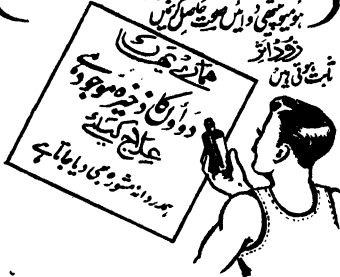 ہومیوپیتھی دوائیں صورت حاصل کرتیں
زود اثر
ثابت ہوتی ہیں
ہمارے یہاں
دواؤں کا ذخیرہ موجود ہے
علاج کیلئے
ہمدردانہ مشورہ بھی دیا جاتا ہے